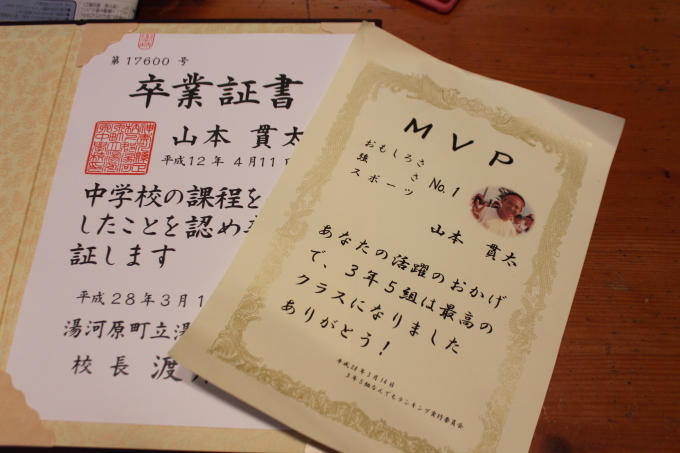 第17600号
卒業証書
山本 貫太
平成12年4月11
中学校の課程を
したことを認め
証します
平成28年3月1
湯河原町立湯
校長 渡
MVP
おもしろさ
強さ
スポーツ
No.1
山本 貫太
あなたの活躍のおかげ
で、3年5組は最高の
クラスになりました
ありがとう!
平成28年3月14日
3年5組なんでもランキング実行委員会